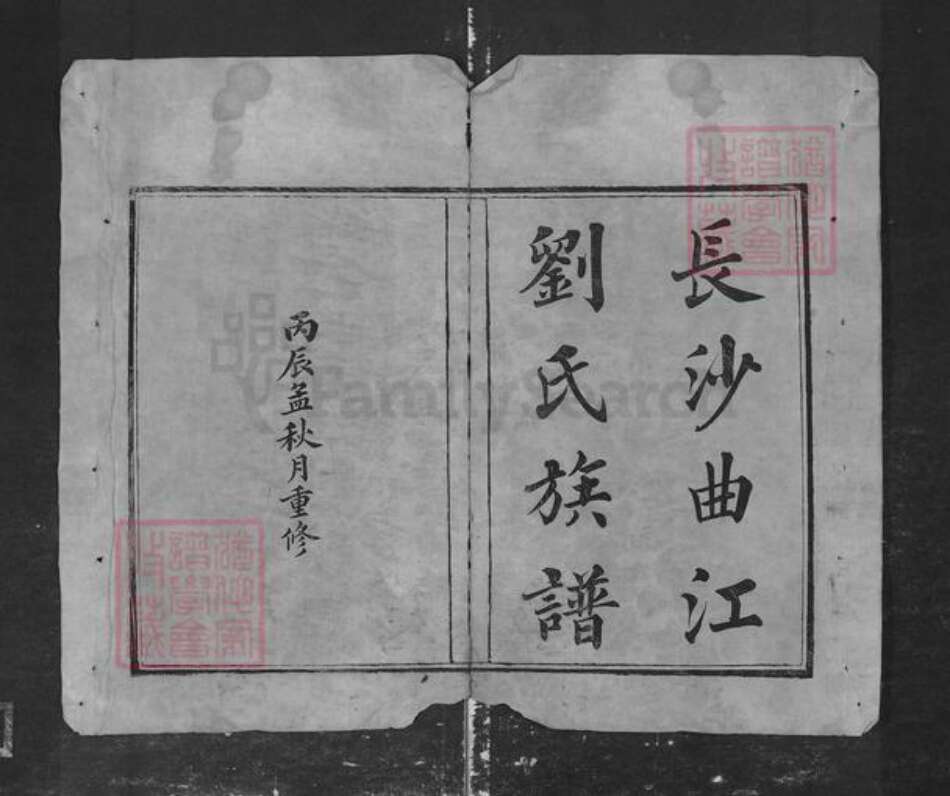 長沙曲江
劉氏族譜
丙辰孟秋月重修
FamilySearch